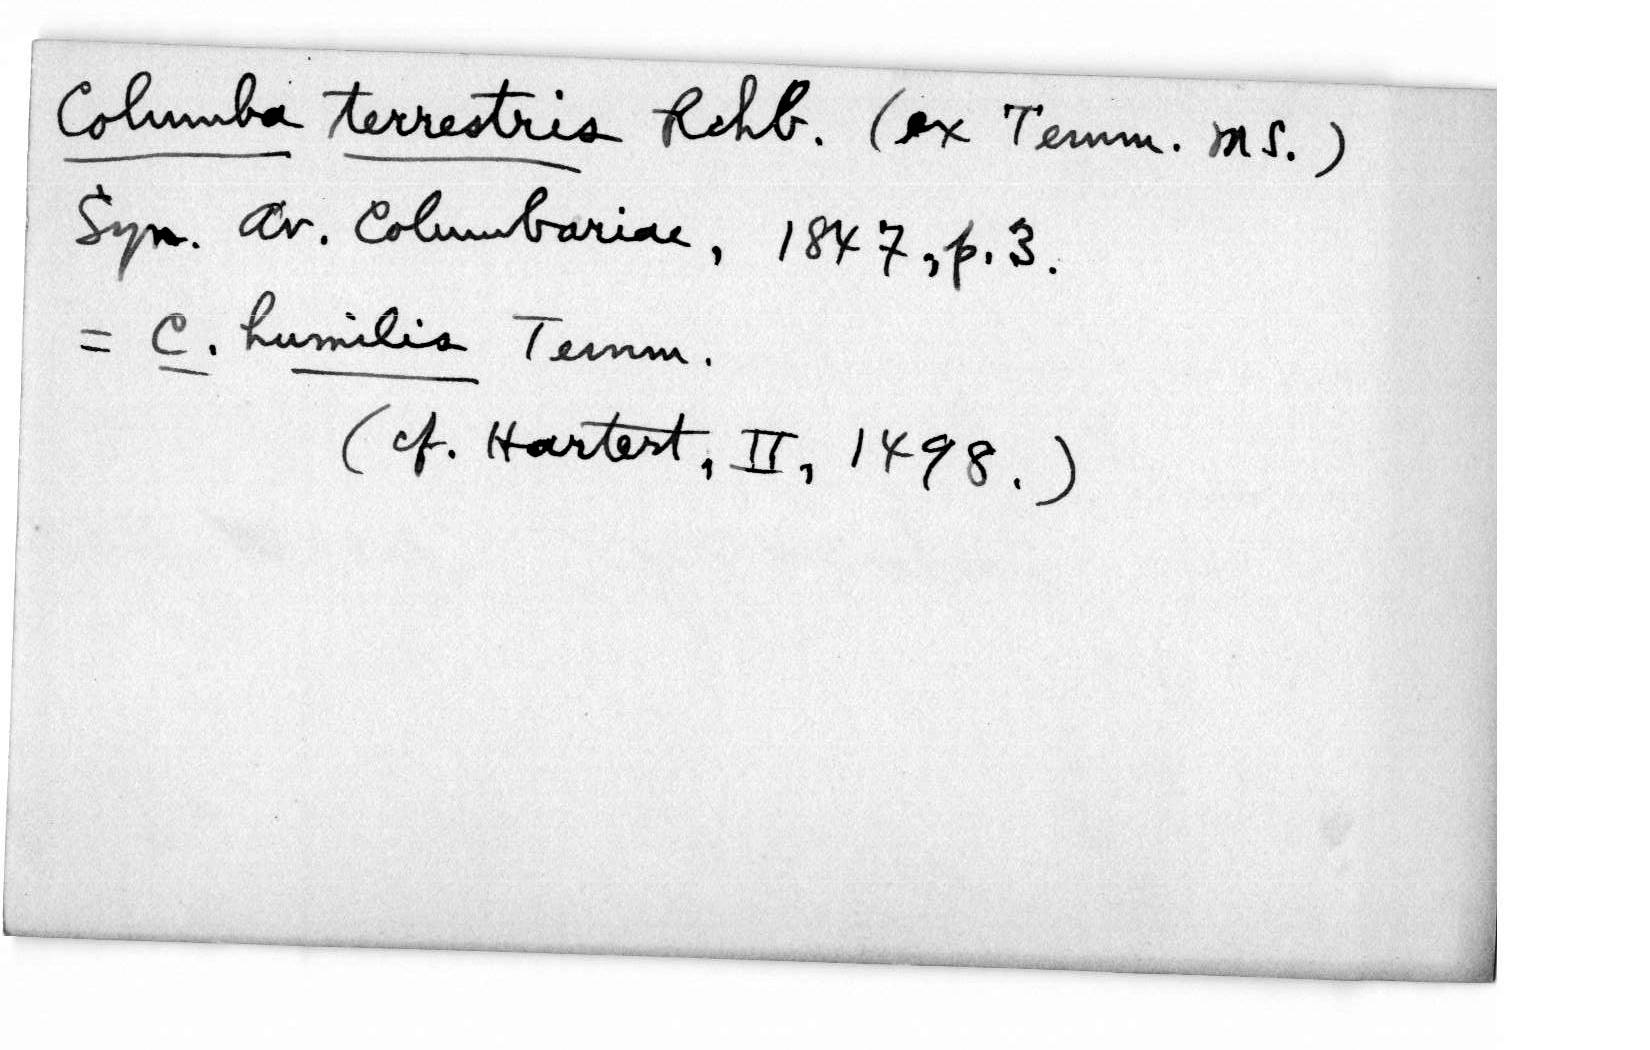 Columba terrestris Rchb. (ex Temm. MS.)
Syn. Av. Columbariae, 1847, p. 3.
= C. humilis Temm.
(cf. Hartert, II, 1498.)